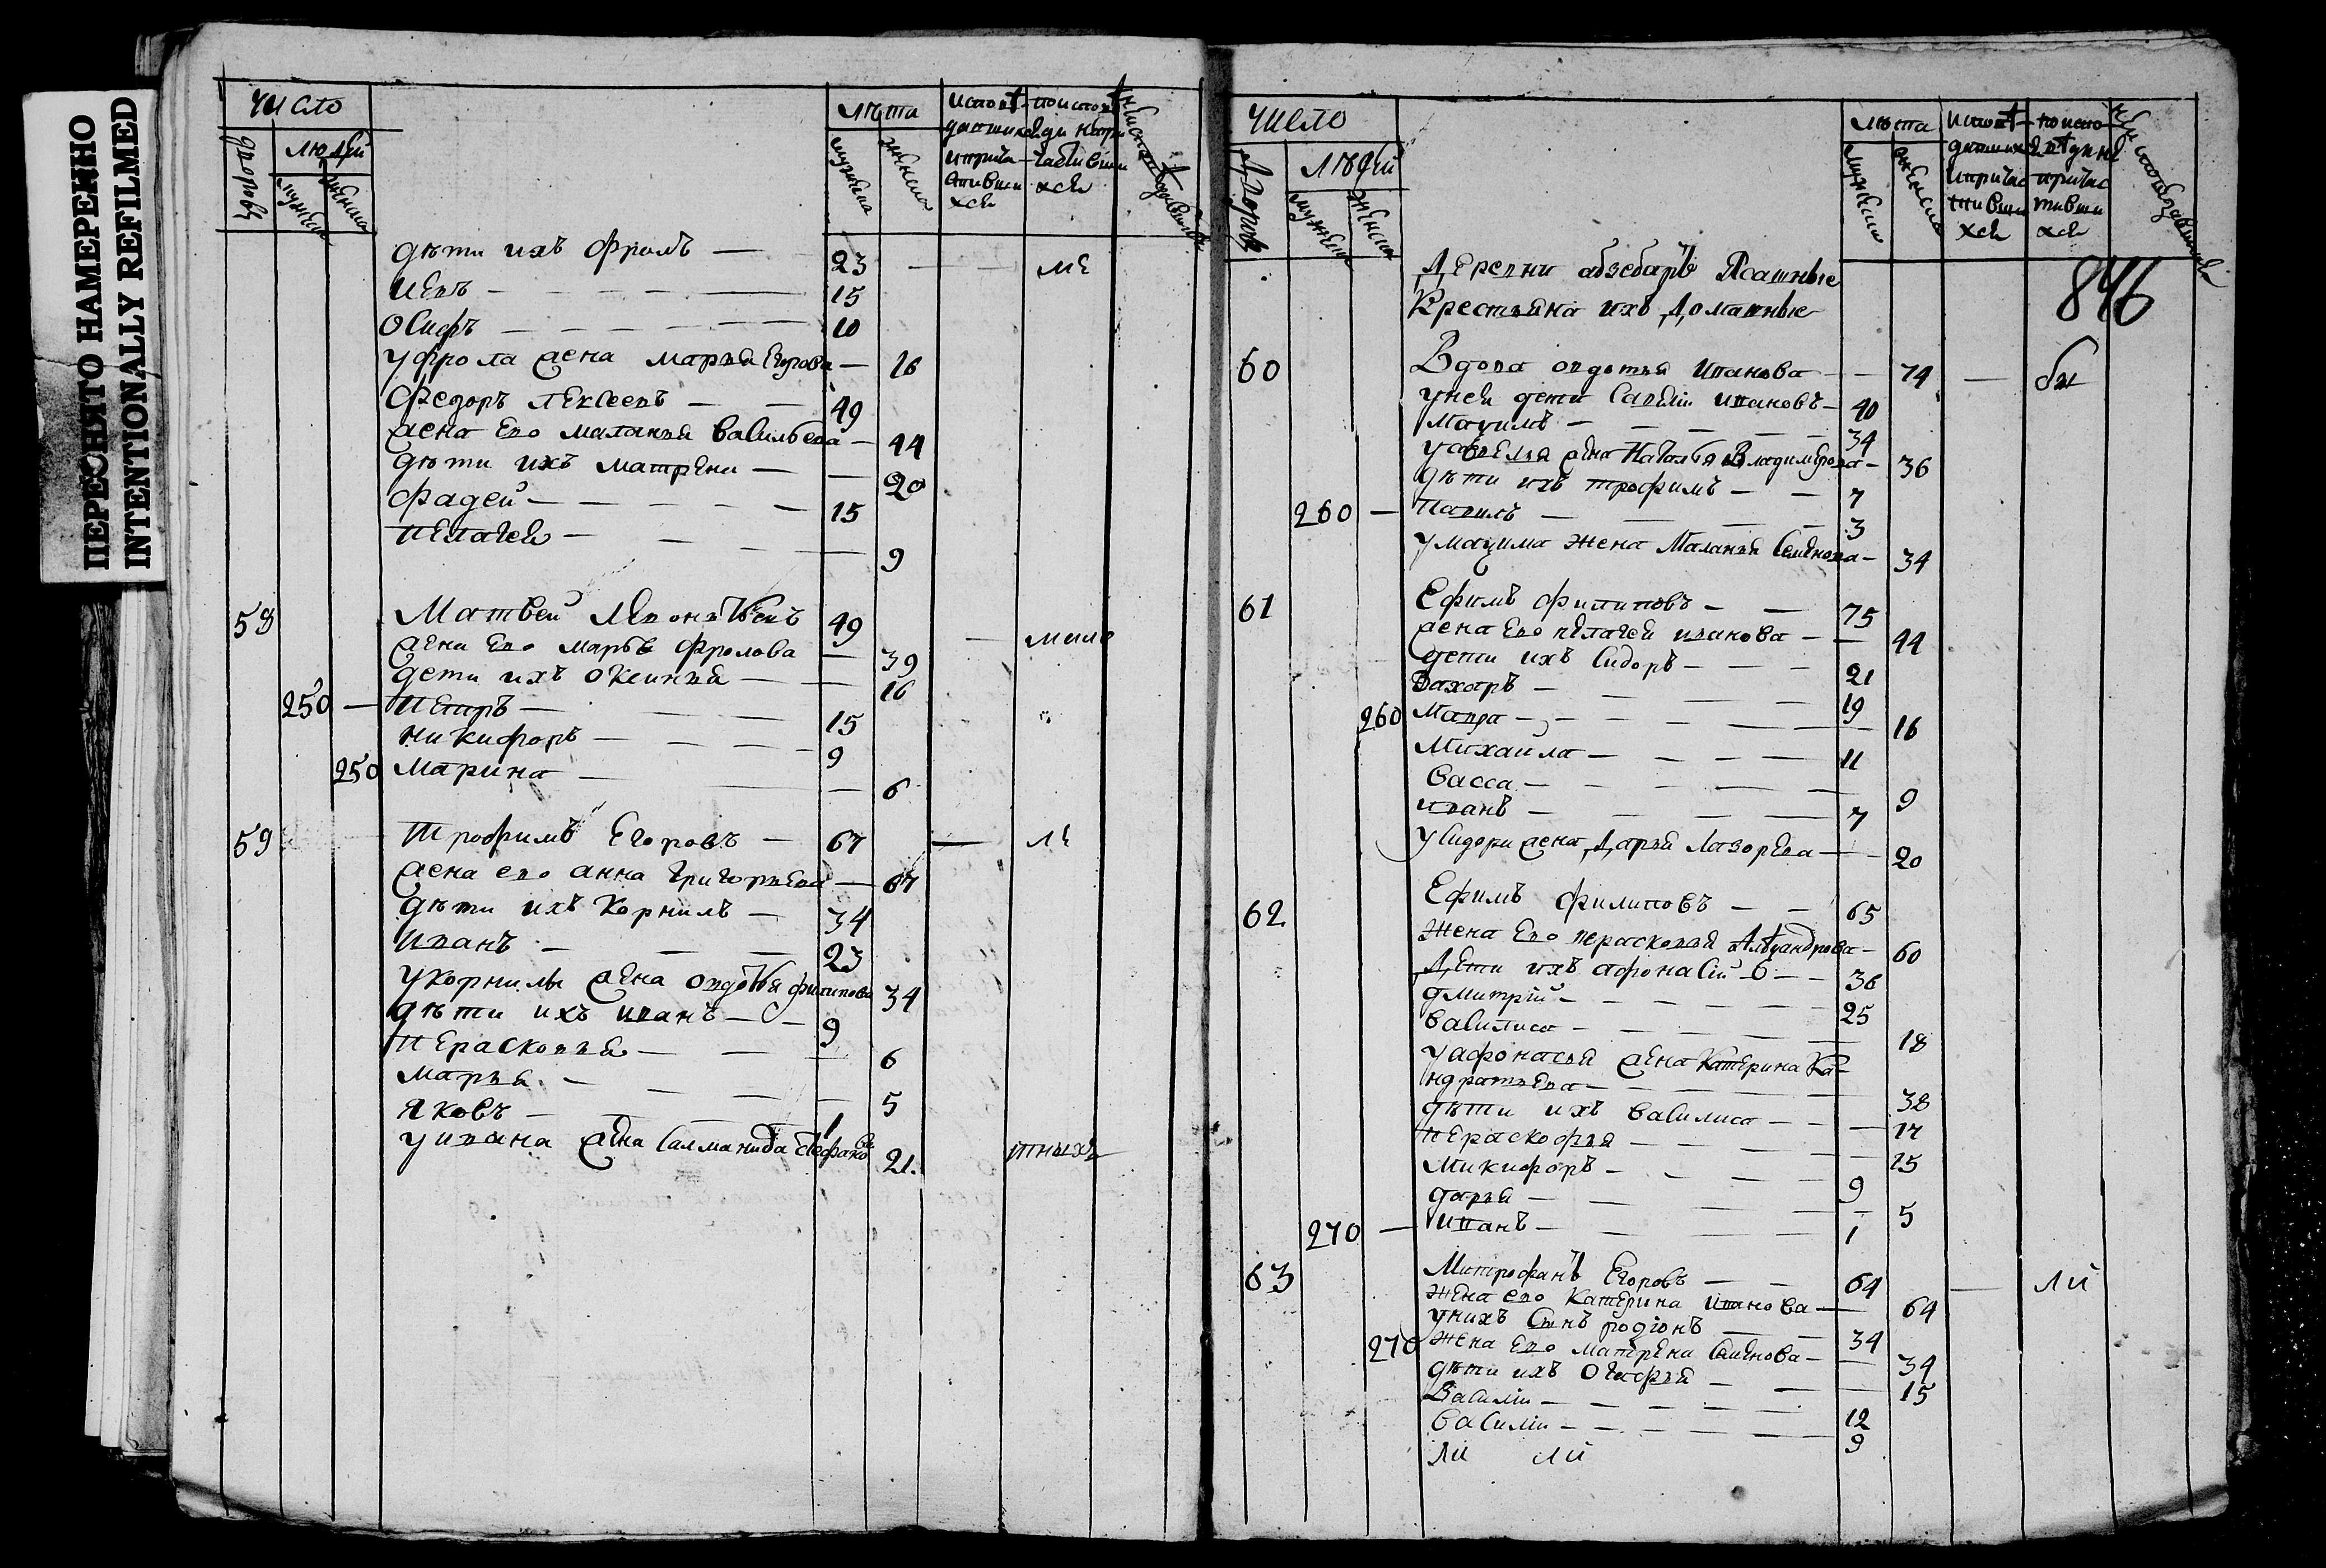 ПЕРЕСНЯТО НАМЕРЕННО
INTENTIONALLY REFILMED
число
дворовъ
людей
мужеска
женска
лѣта
мужеска
женска
дѣти ихъ Фролъ — 23 — — ме
Иевъ — 15
Осифъ — 10
у Фрола жена Марья Егорова — 16
Федоръ Лексеевъ — 49
жена ево Маланья Васильева — 44
дѣти ихъ Матрена — 20
Фадей — 15
Пелагея — 9
58 Матвей 49
жена ево Марья Фролова — 39
дети ихъ Оксинья — 16
250 — Петръ — 15
Никифоръ — 9
250 Марина — 6
59 Трофимъ Егоровъ — 67 —
жена ево Анна Григорьева — 67
дѣти ихъ Корнилъ — 34
Иванъ — 23
у Корнилы жена Овдотья Филипова 34
дѣти ихъ Иванъ — 9
Перасковья — 6
Марья — 5
Яковъ — 1
у Ивана жена 21
тныхъ
число
дворовъ
людей
мужеска
женска
лѣта
мужеска
женска
846
Деревни Ясашные
Крестьяна ихъ Домашные
60 Вдова Овдотья Иванова — 74 — бы
у ней дети Савелiи Ивановъ — 40
Мацимъ — 34
у Савелья жена Наталья Владимерова — 36
дѣти ихъ Трофимъ — 7
260 — Павилъ — 3
у Мацима жена Маланья Семенова — 34
61 Ефимъ Филиповъ — 75
жена ево Пелагея Иванова — 44
дети ихъ Сидоръ — 21
Захаръ — 19
260 Мавра — 16
Михаила — 11
Васса — 9
Иванъ — 7
у Сидора жена Дарья Лазорева — 20
62 Ефимъ Филиповъ — 65
Жена ево Перасковья Алѣцандрова — 60
Дети ихъ Афонасiй — 36
Дмитрiй — 25
Василиса — 18
у Афонасья жена Катерина Ка-
ндратьева — 38
дѣти ихъ Василиса — 17
Пераскофья — 15
Микифоръ — 9
Дарья — 5
270 — Иванъ — 1
63 Митрофанъ Егоровъ — 64 — ли
Жена ево Катерина Иванова — 64
у нихъ Сынъ Родiонъ — 34
270 Жена ево Матрена Семенова — 34
дѣти ихъ Огафья — 15
Василiи — 12
Василiи — 9
ли ли